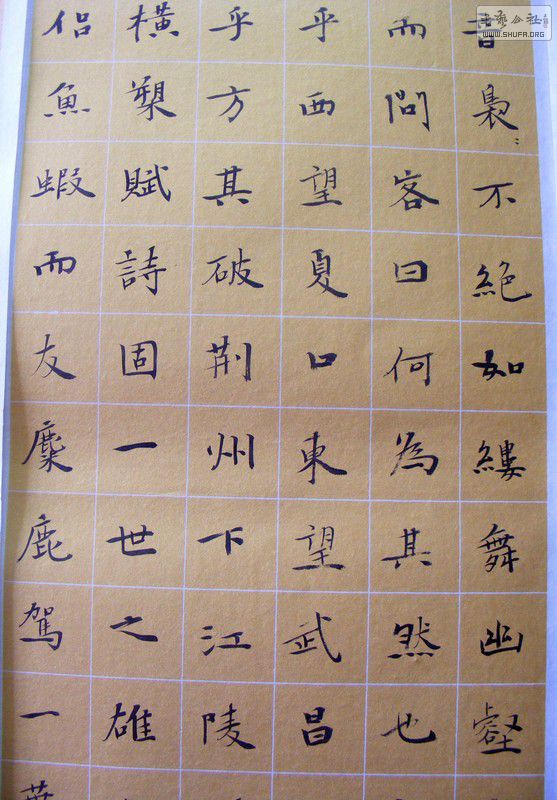 音裊〻不絕如縷舞幽壑
而問客曰何為其然也
乎西望夏口東望武昌
乎方其破荊州下江陵
橫槊賦詩固一世之雄
侶魚蝦而友麋鹿駕一
公社
WWW.SHUFA.ORG